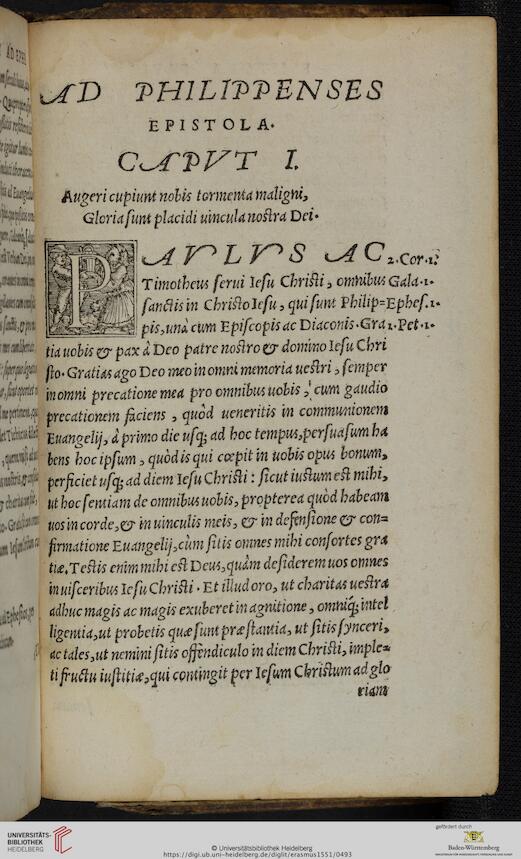 AD PHILIPPENSES
EPISTOLA.
CAPVT I.
Augeri cupiunt nobis tormenta maligni,
Gloria sunt placidi uincula nostra Dei.
PAVLVS AC 2.Cor.1.
Timotheus serui Iesu Christi, omnibus Gala.1.
sanctis in Christo Iesu, qui sunt Philip= Ephes.1.
pis, unà cum Episcopis ac Diaconis. Gra 1.Pet.1.
tia uobis & pax à Deo patre nostro & domino Iesu Chri
sto. Gratias ago Deo meo in omni memoria uestri, semper
in omni precatione mea pro omnibus uobis, cum gaudio
precationem faciens, quòd ueneritis in communionem
Euangelij, à primo die usq; ad hoc tempus, persuasum ha
bens hoc ipsum, quòd is qui cœpit in uobis opus bonum,
perficiet usq; ad diem Iesu Christi: sicut iustum est mihi,
ut hoc sentiam de omnibus uobis, propterea quòd habeam
uos in corde, & in uinculis meis, & in defensione & con=
firmatione Euangelij, cùm sitis omnes mihi consortes gra
tiæ. Testis enim mihi est Deus, quàm desiderem uos omnes
in uisceribus Iesu Christi. Et illud oro, ut charitas uestra
adhuc magis ac magis exuberet in agnitione, omniq; intel
ligentia, ut probetis quæ sunt præstantia, ut sitis synceri,
ac tales, ut nemini sitis offendiculo in diem Christi, imple=
ti fructu iustitiæ, qui contingit per Iesum Christum ad glo
riam
UNIVERSITÄTS-
BIBLIOTHEK
HEIDELBERG
© Universitätsbibliothek Heidelberg
https://digi.ub.uni-heidelberg.de/diglit/erasmus1551/0493
gefördert durch
Baden-Württemberg